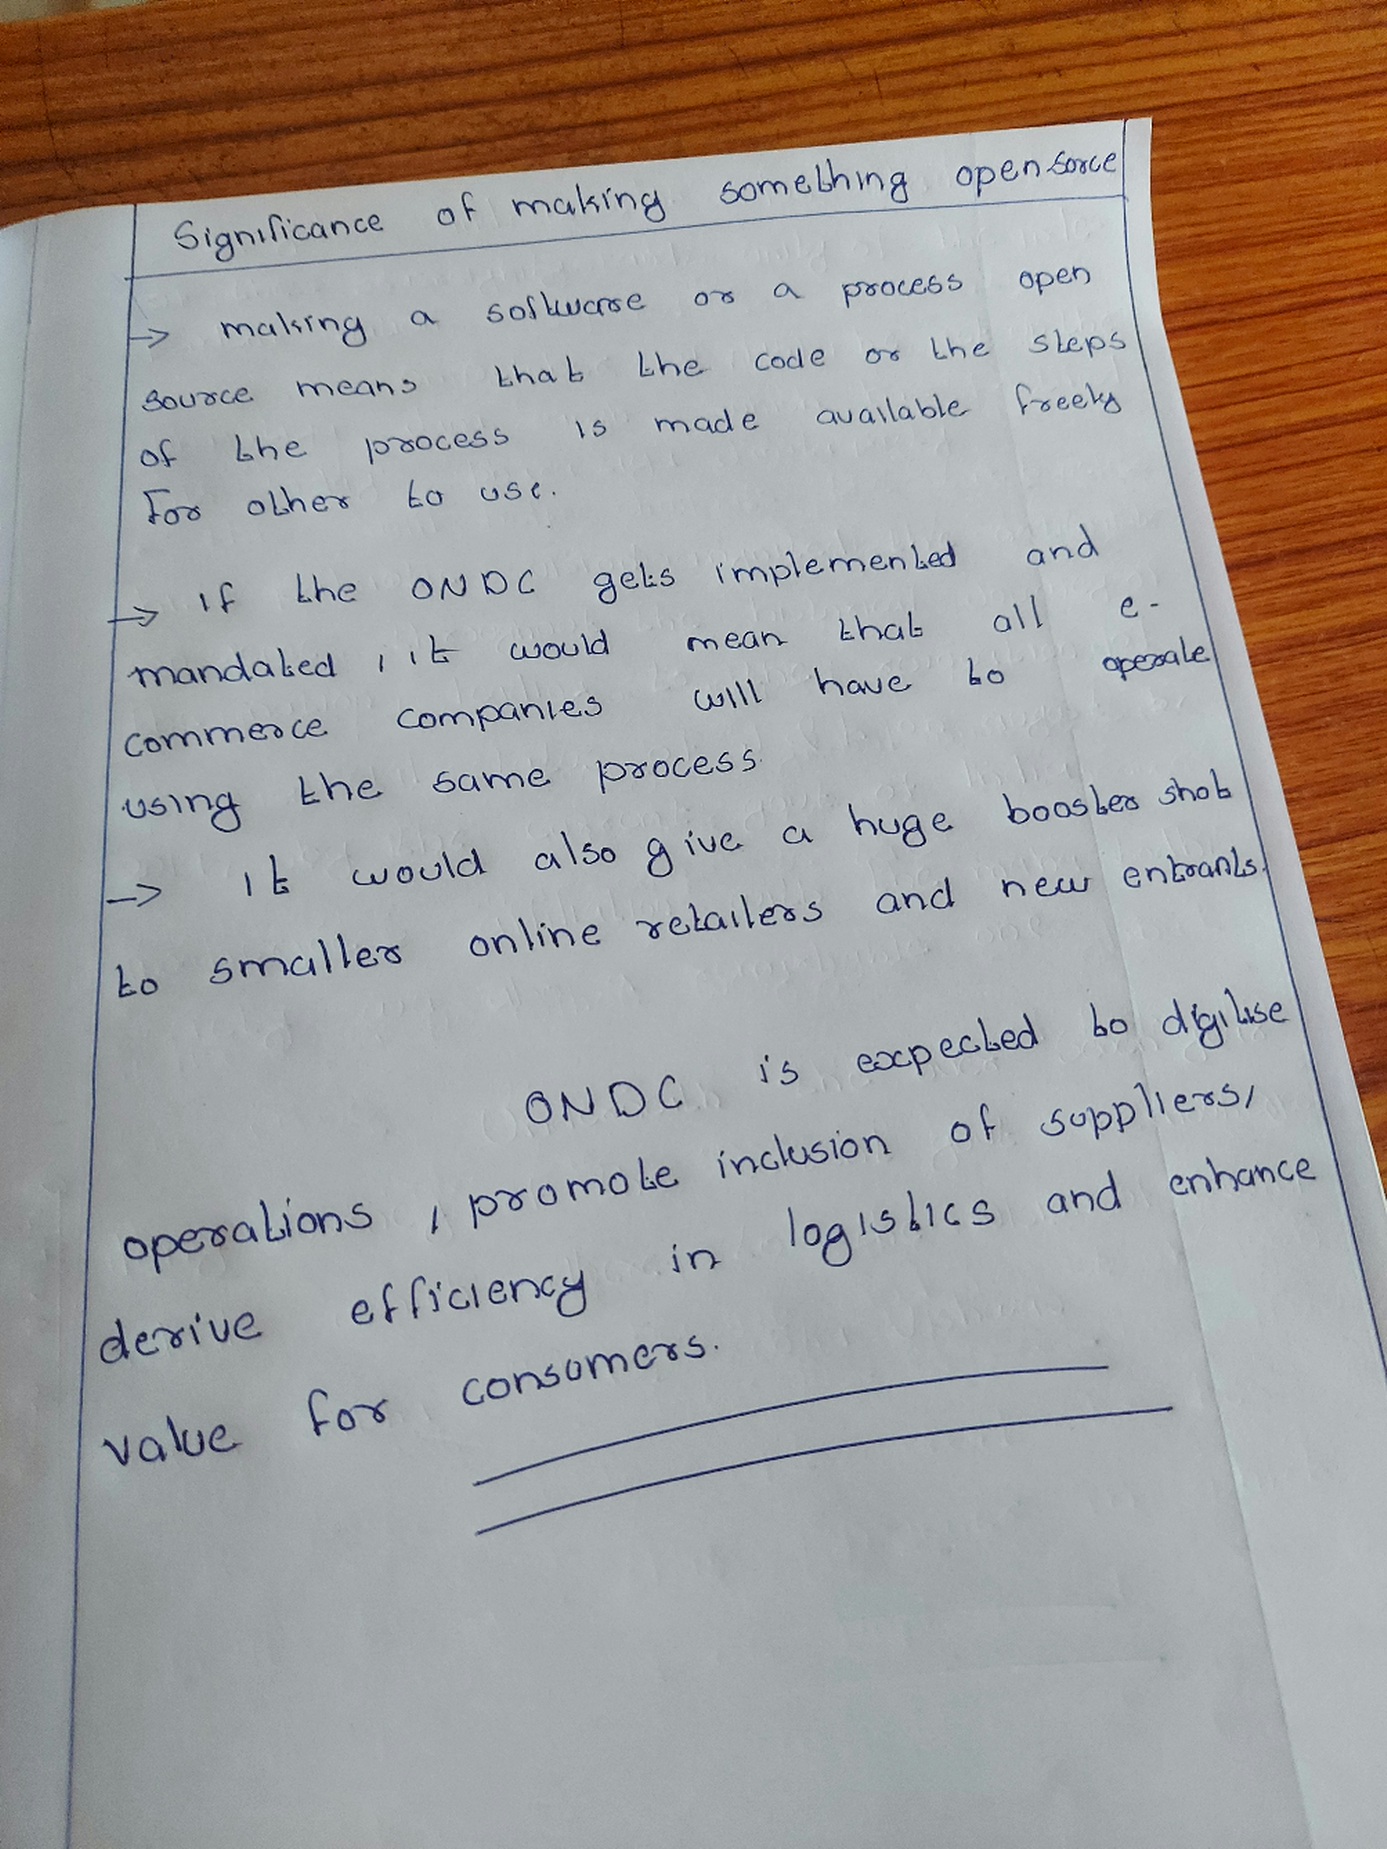 Significance of making something open sorce
→ making a software or a process open
source means that the code or the steps
of the process is made available freely
for other to use.
→ if the ONDC gets implemented and
mandated, it would mean that all e-
commerce companies will have to operate
using the same process.
→ it would also give a huge booster shot
to smaller online retailers and new entrants.
ONDC is expected to digitise
operations, promote inclusion of suppliers,
derive efficiency in logistics and enhance
value for consumers.